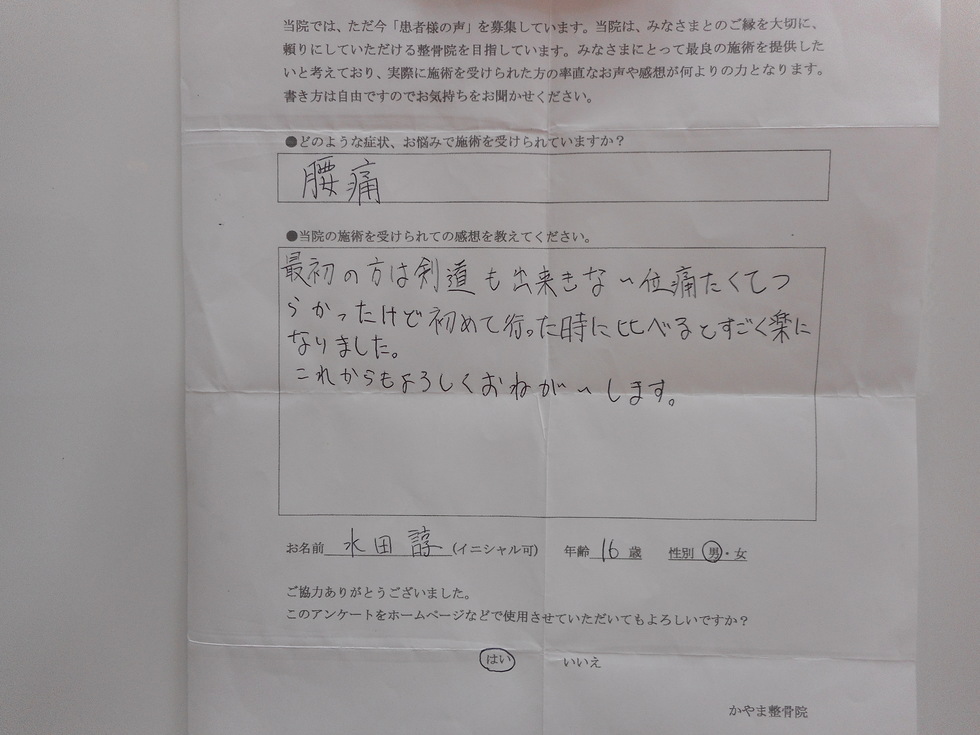 当院では、ただ今「患者様の声」を募集しています。当院は、みなさまとのご縁を大切に、
頼りにしていただける整骨院を目指しています。みなさまにとって最良の施術を提供した
いと考えており、実際に施術を受けられた方の率直なお声や感想が何よりの力となります。
書き方は自由ですのでお気持ちをお聞かせください。
●どのような症状、お悩みで施術を受けられていますか？
腰痛
●当院の施術を受けられての感想を教えてください。
最初の方は剣道も出来きない位痛たくてつ
らかったけど初めて行った時に比べるとすごく楽に
なりました。
これからもよろしくおねがいします。
お名前 水田 諄 (イニシャル可) 年齢 16 歳 性別 男・女
ご協力ありがとうございました。
このアンケートをホームページなどで使用させていただいてもよろしいですか？
はい いいえ
かやま整骨院